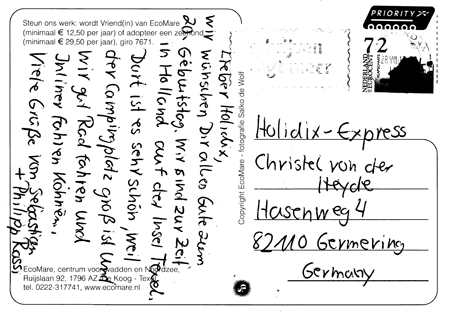 Steun ons werk: wordt Vriend(in) van EcoMare
(minimaal € 12,50 per jaar) of adopteer een
(minimaal € 29,50 per jaar), giro 7671.
Lieber Holidix,
wir wünschen Dir alles Gute zum
20. Geburtstag. Wir sind zur Zeit
in Holland auf der Insel Texel.
Dort ist es sehr schön, weil
der Campingplatz groß ist und
wir gut Rad fahren und
Inliner fahren können.
Viele Grüße von Sebastian
+ Philipp Kossi
EcoMare, centrum voor wadden en Noordzee,
Ruijslaan 92, 1796 AZ De Koog - Texel
tel. 0222-317741, www.ecomare.nl
Copyright EcoMare - fotografie Salko de Wolf
PRIORITY
72
NEDERLAND
Holidix-Express
Christel von der
Heyde
Hasenweg 4
82110 Germering
Germany